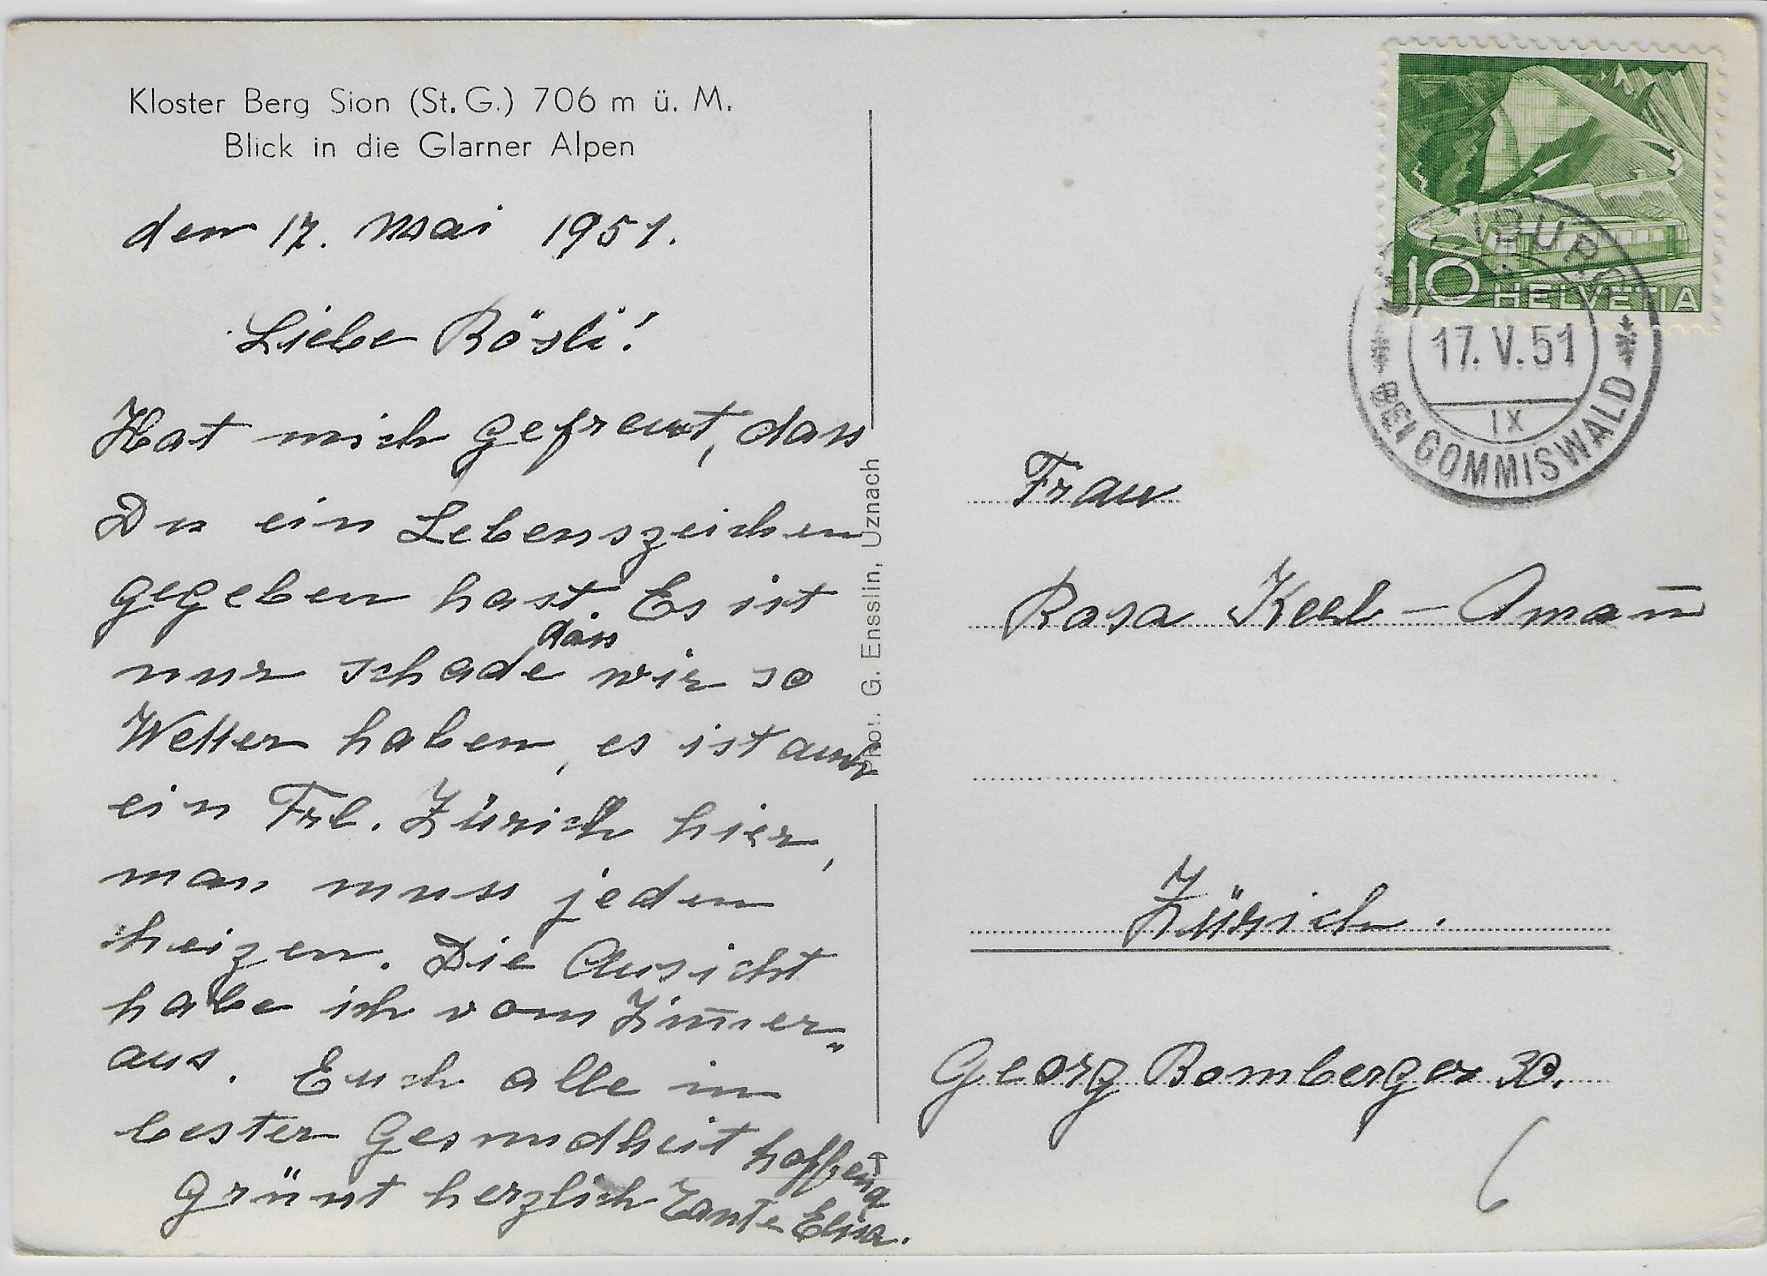 Kloster Berg Sion (St. G.) 706 m ü. M.
Blick in die Glarner Alpen
den 17. Mai 1951.
Liebe Rösli!
Hat mich gefreut, dass
Du ein Lebenszeichen
gegeben hast. Es ist
dass
nur schade wir so
Wetter haben, es ist auch
ein Frl. Zürich hier,
man muss jeden
heizen. Die Aussicht
habe ich vom Zimmer
aus. Euch alle in
bester Gesundheit hoffend
Grüsst herzlich Tante Elisa.
Phot. G. Ensslin, Uznach
10 HELVETIA
BURG
17. V. 51
IX
BEI GOMMISWALD
Frau
Rosa Keel - Aman̄
Zürich.
Georg Bomberger 30.